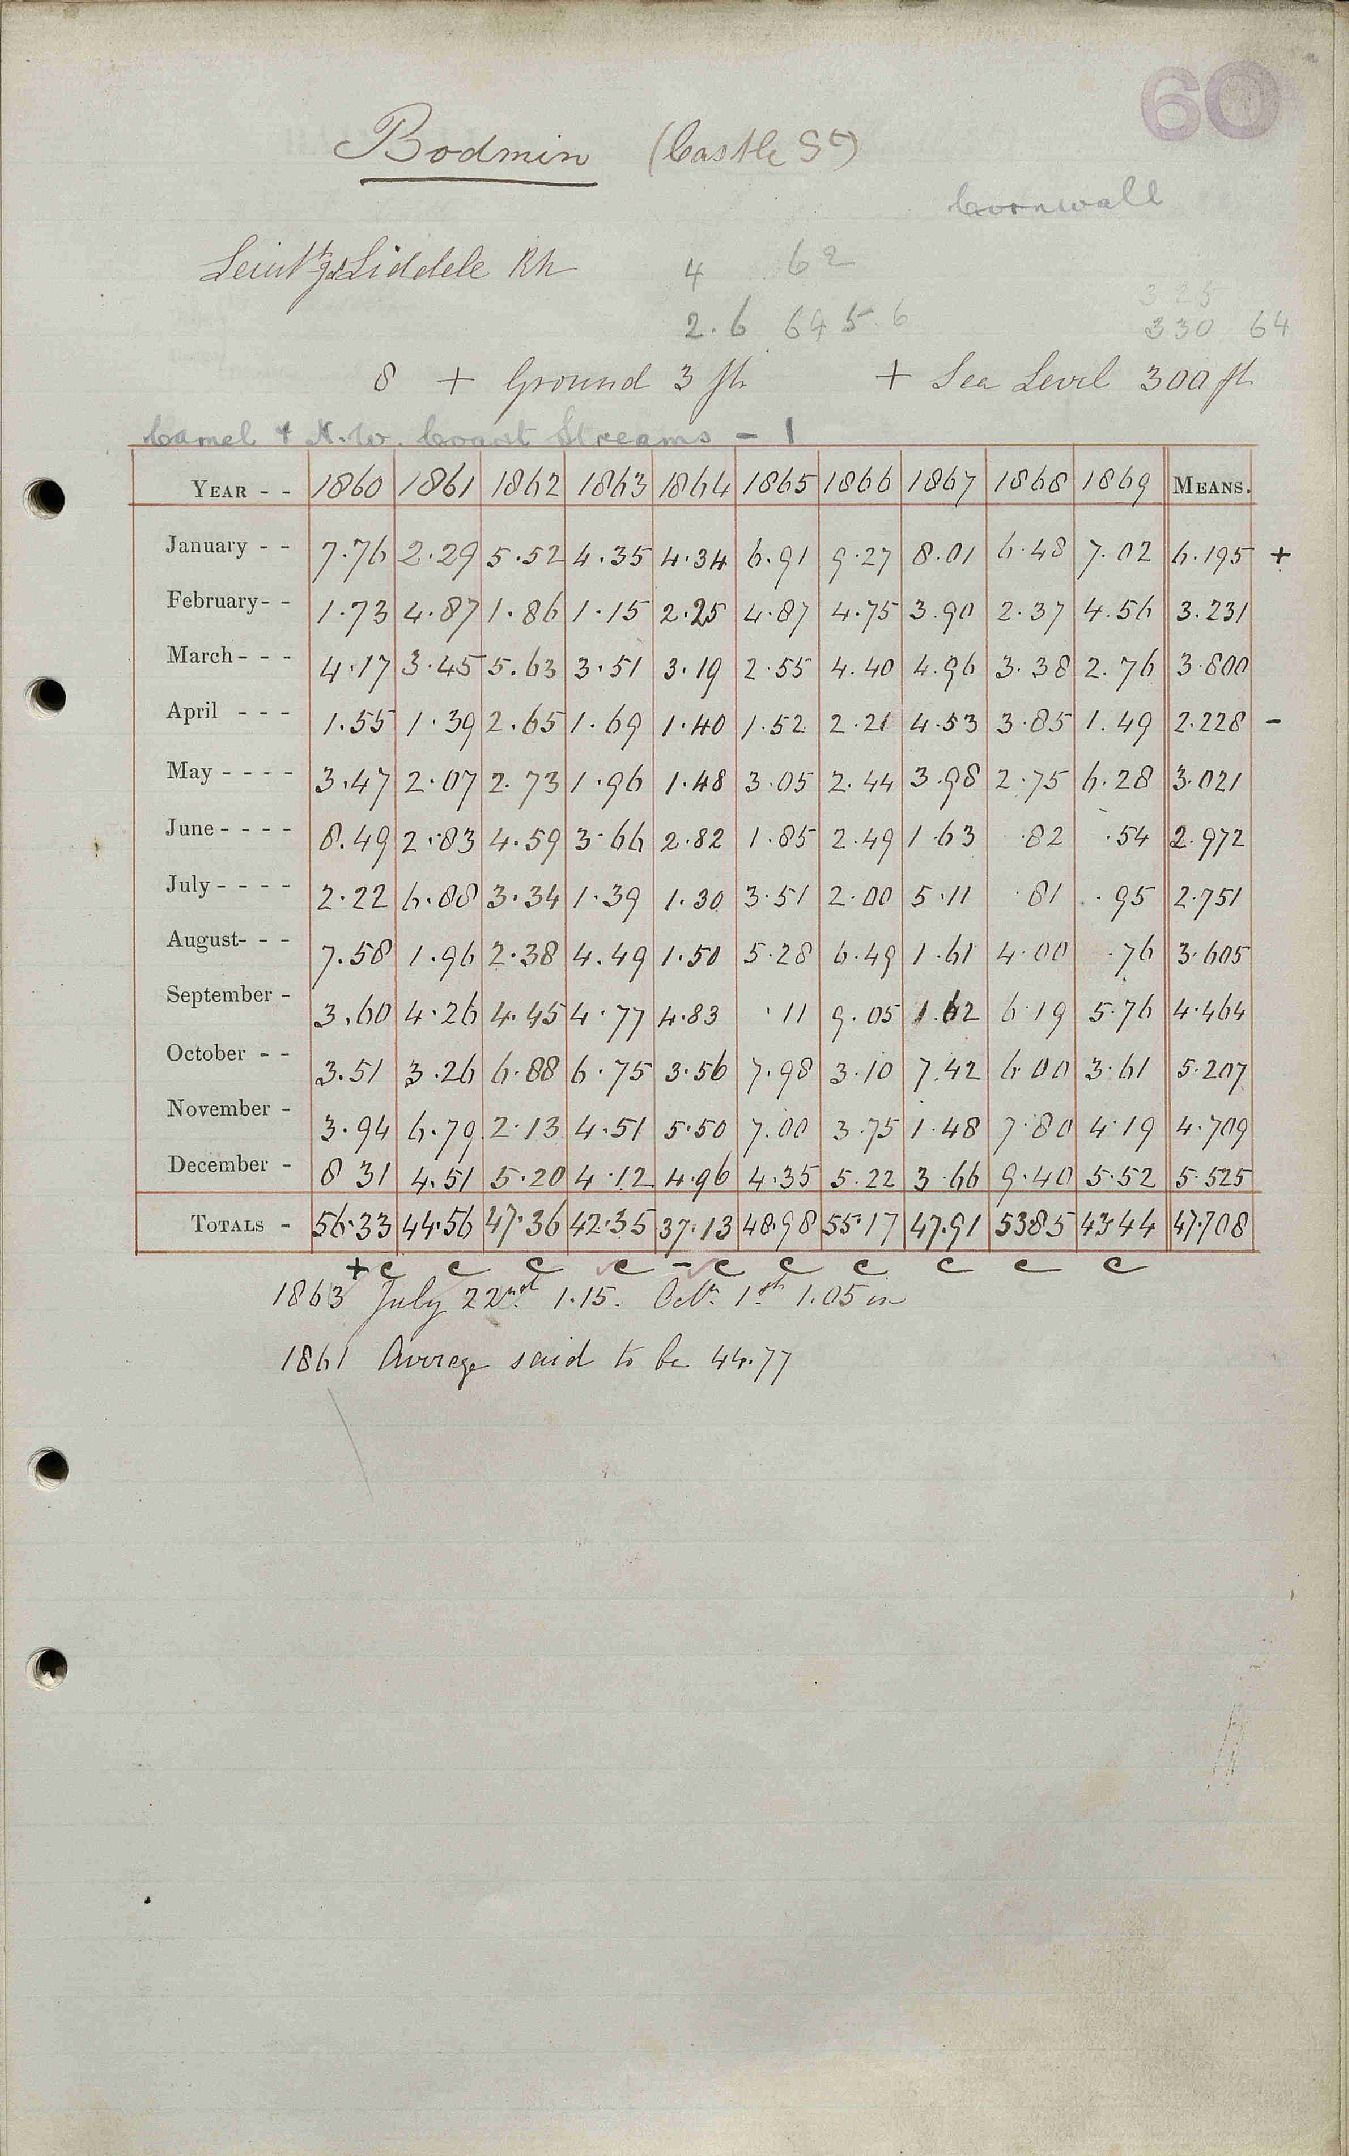 60
Bodmin (Castle St)
Cornwall
Liddele RN
4 62
2.6 64 5.6
325
330 64
8 + Ground 3 ft + Sea Level 300 ft
Camel & N.W. Coast Streams - 1
YEAR - - 1860 1861 1862 1863 1864 1865 1866 1867 1868 1869 MEANS.
January - - 7.76 2.29 5.52 4.35 4.34 6.91 9.27 8.01 6.48 7.02 6.195 +
February- - 1.73 4.87 1.86 1.15 2.25 4.87 4.75 3.90 2.37 4.56 3.231
March - - - 4.17 3.45 5.63 3.51 3.19 2.55 4.40 4.96 3.38 2.76 3.800
April - - - 1.55 1.39 2.65 1.69 1.40 1.52 2.21 4.53 3.85 1.49 2.228 -
May - - - - 3.47 2.07 2.73 1.96 1.48 3.05 2.44 3.98 2.75 6.28 3.021
June - - - - 8.49 2.83 4.59 3.66 2.82 1.85 2.49 1.63 .82 .54 2.972
July - - - - 2.22 6.88 3.34 1.39 1.30 3.51 2.00 5.11 .81 .95 2.751
August- - - 7.58 1.96 2.38 4.49 1.50 5.28 6.49 1.61 4.00 .76 3.605
September - 3.60 4.26 4.45 4.77 4.83 .11 9.05 1.62 6.19 5.76 4.464
October - - 3.51 3.26 6.88 6.75 3.56 7.98 3.10 7.42 6.00 3.61 5.207
November - 3.94 6.79 2.13 4.51 5.50 7.00 3.75 1.48 7.80 4.19 4.709
December - 8 31 4.51 5.20 4.12 4.96 4.35 5.22 3.66 9.40 5.52 5.525
TOTALS - 56.33 44.56 47.36 42.35 37.13 48.98 55.17 47.91 53.85 43.44 47.708
+ c c c c - c c c c c c
1863 July 22nd 1.15. Octr. 1st 1.05 in
1861 Average said to be 44.77